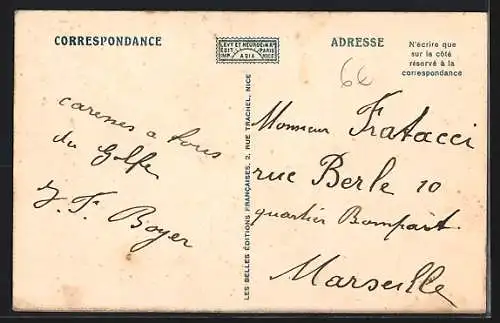 CORRESPONDANCE
LEVY ET NEURDEIN Rs
EDIT. PARIS
IMP. A.D.I.A. NICE
ADRESSE
N'écrire que
sur le côté
réservé à la
correspondance
6€
caresses a tous
du Golfe
J. F. Boyer
LES BELLES ÉDITIONS FRANÇAISES, 2, RUE TRACHEL, NICE
Monsieur Fratacci
rue Berle 10
quartier Bompart.
Marseille